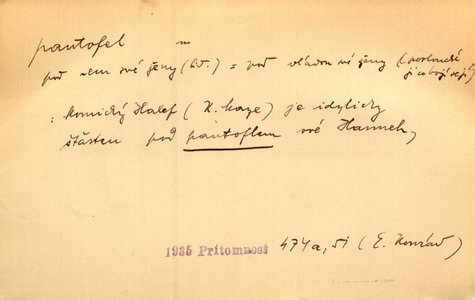 pantofel m
pod -em své ženy (kt.) = pod vládou své ženy (poslouchá
ji a bojí se jí
: Komický Halef (K. Maye) je idylicky
šťasten pod pantoflem své Hanneh,
1935 Přítomnost 474a, 51 (E. Konrád)